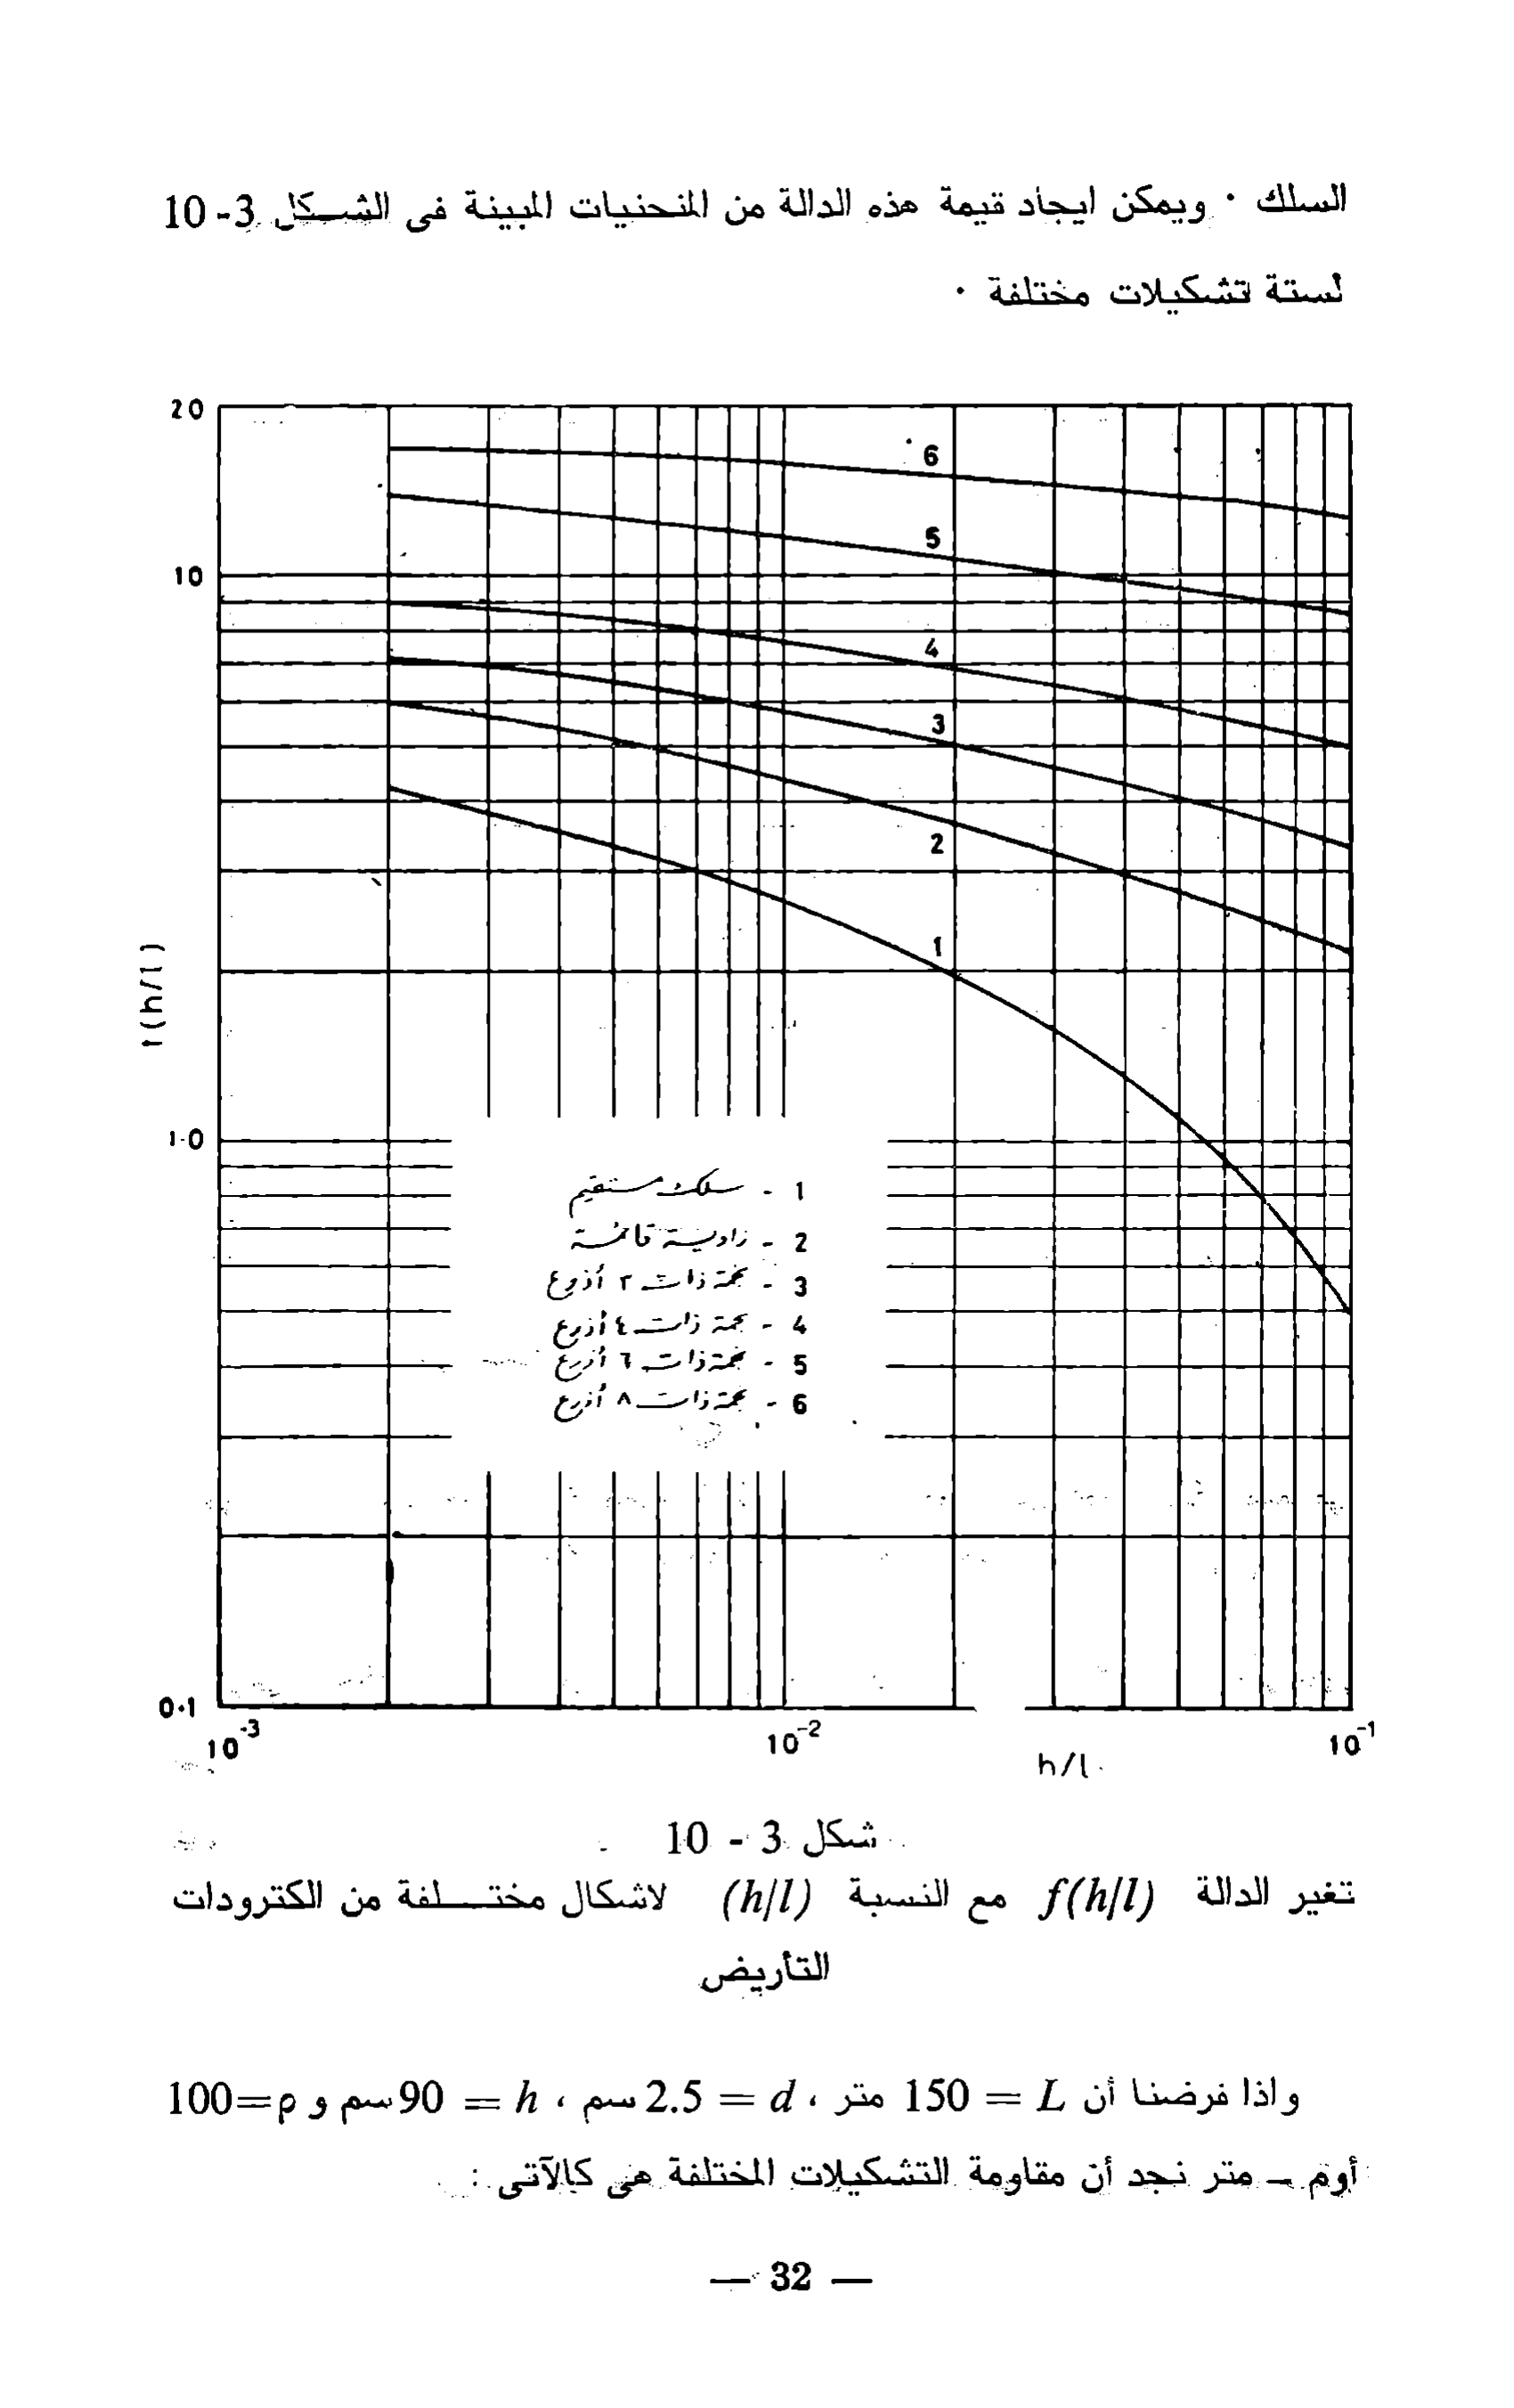 السلك · ويمكن ايجاد قيمة هذه الدالة من المنحنيات المبينة فى الشكل 3-10
لستة تشكيلات مختلفة ·
20
10
1·0
0·1
f(h/l)
6
5
4
3
2
1
1 - سلك مستقيم
2 - زاوية قائمة
3 - نجمة ذات ٣ أذرع
4 - نجمة ذات ٤ أذرع
5 - نجمة ذات ٦ أذرع
6 - نجمة ذات ٨ أذرع
10⁻³ 10⁻² 10⁻¹
h/l
شكل 3 - 10
تغير الدالة f(h/l) مع النسبة (h/l) لاشكال مختلفة من الكترودات
التأريض
واذا فرضنا أن L = 150 متر ، d = 2.5 سم ، h = 90 سم و ρ=100
أوم – متر نجد أن مقاومة التشكيلات المختلفة هى كالآتى :
— 32 —